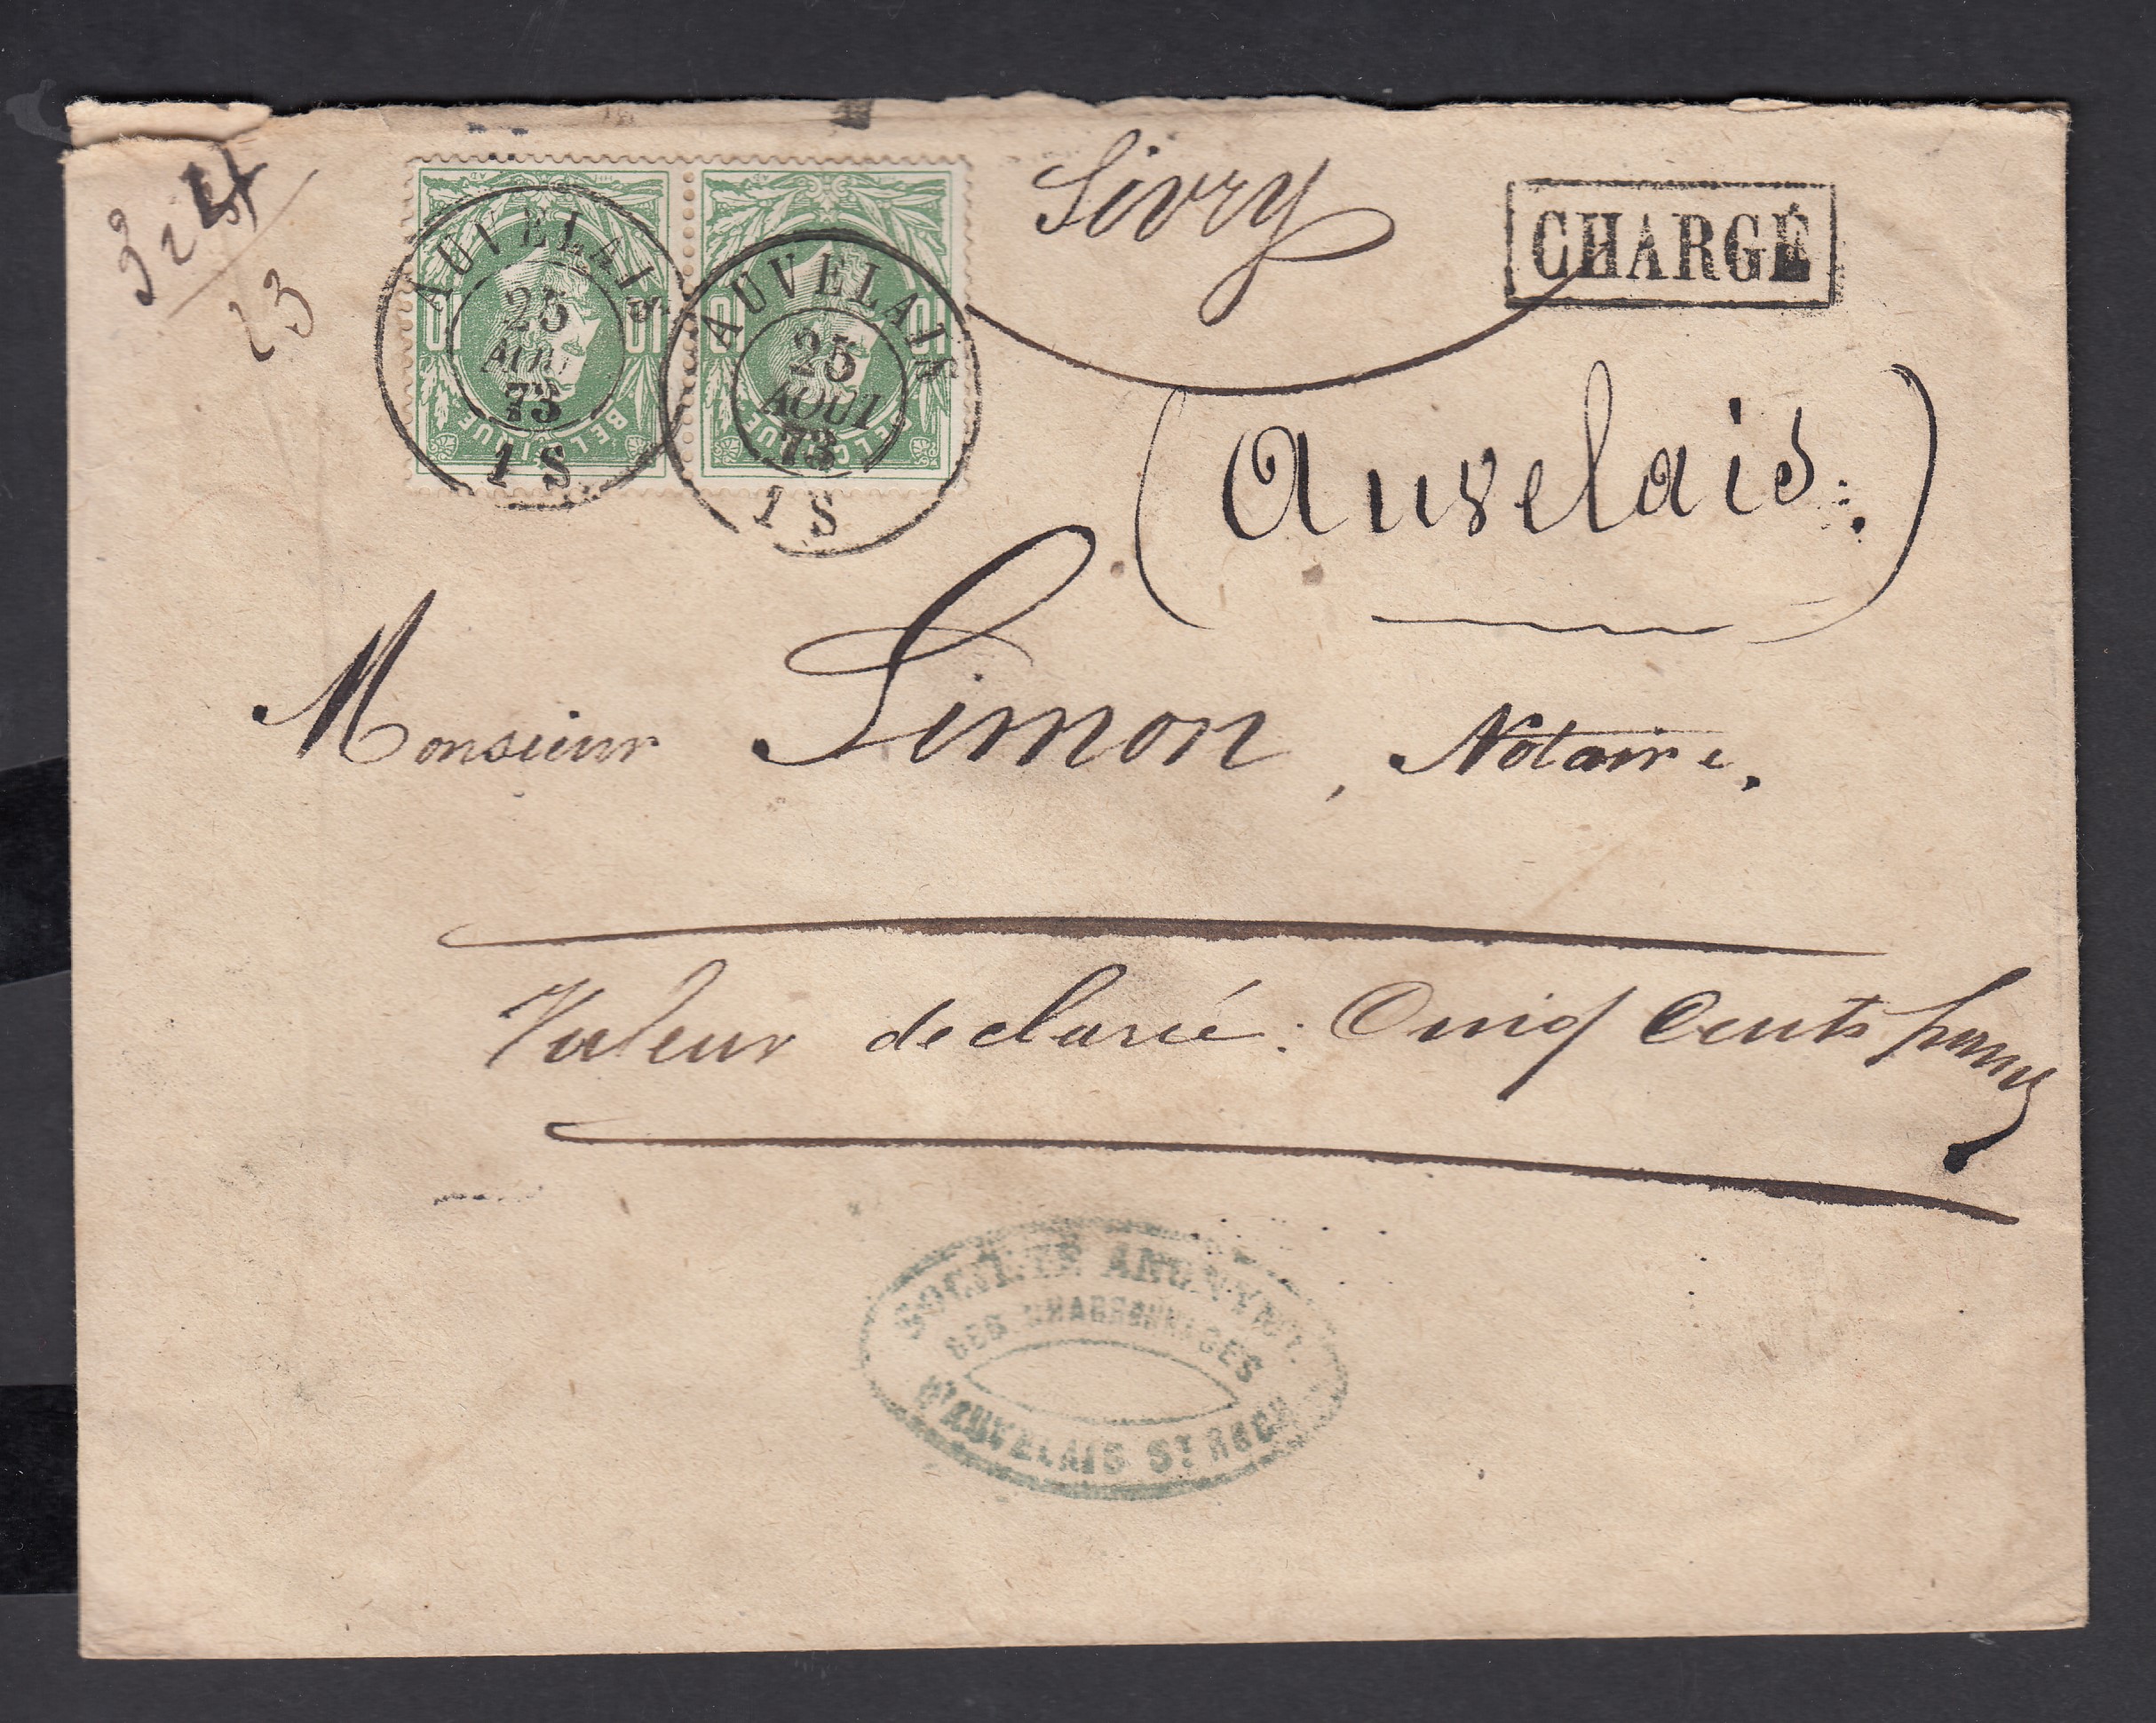 Sivry
CHARGÉ
(Auvelais.)
AUVELAIS
25
AOUT
73
1 S
AUVELAIS
25
AOUT
73
1 S
10 10
BELGIQUE
10 10
BELGIQUE
23
Monsieur Simon, Notaire.
Valeur declarée: Cinq Cents francs
SOCIÉTÉ ANONYME
DES CHARBONNAGES
D'AUVELAIS ST ROCH